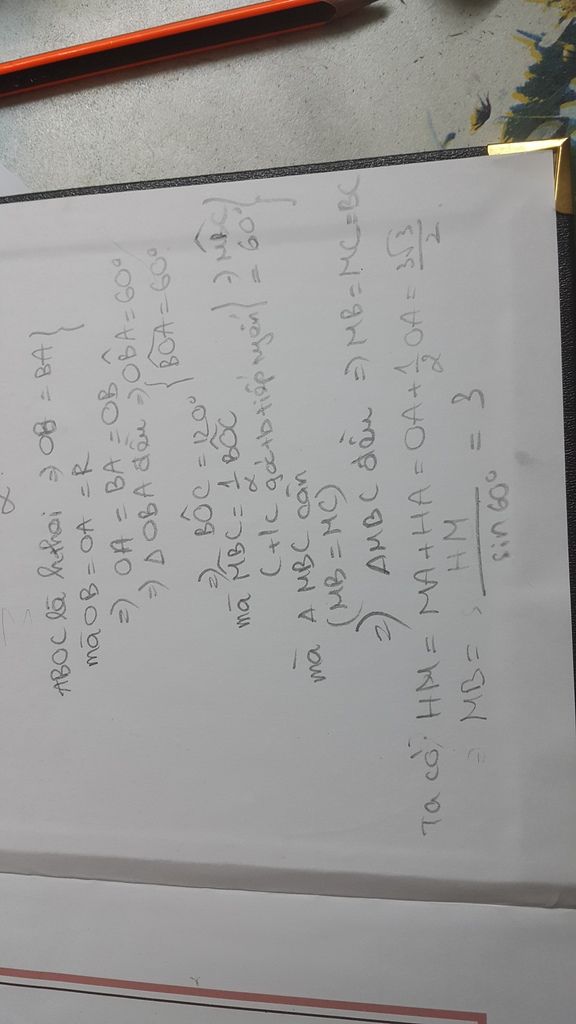 ABOC là hthoi ⇒ OB = BA }
mà OB = OA = R
⇒ OA = BA = OB
⇒ Δ OBA đều ⇒ { OB̂A = 60°
BÔA = 60°
⇒ BÔC = 120°
mà MB̂C = 1/2 BÔC
(t/c góc tb tiếp tuyến) } ⇒ MB̂C = 60° }
mà Δ MBC cân
(MB = MC)
⇒ ΔMBC đều ⇒ MB = MC = BC
Ta có: HM = MA + HA = OA + 1/2 OA = 3√3/2.
⇒ MB = HM/sin 60° = 3